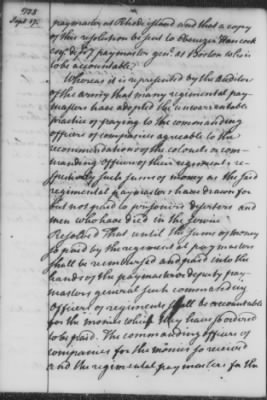 1778
Sept 17.
paymaster at Rhode island and that a copy
of this resolution be sent to Ebenezer Hancock
esqr. dy. paymaster genl. at Boston who is
to be accountable.
Whereas it is represented by the Auditor
of the army that many regimental pay
masters have adopted the unwarrantable
practice of paying to the commanding
officers of companies agreeable to the
recommendation of the colonels or com-
manding Officers of their regiments re-
spectively such sums of money as the sd
regimental paymasters have drawn for
but not paid to prisoners deserters and
men who have died in the service
Resolved That until the sums of money
so paid by the regimental paymasters
shall be reimbursed and paid into the
hands of the paymaster or deputy pay-
masters general such commanding
Officers of regiments shall be accountable
for the monies which they have so ordered
to be paid. The commanding officers of
companies for the monies so received
and the regimental paymasters for the